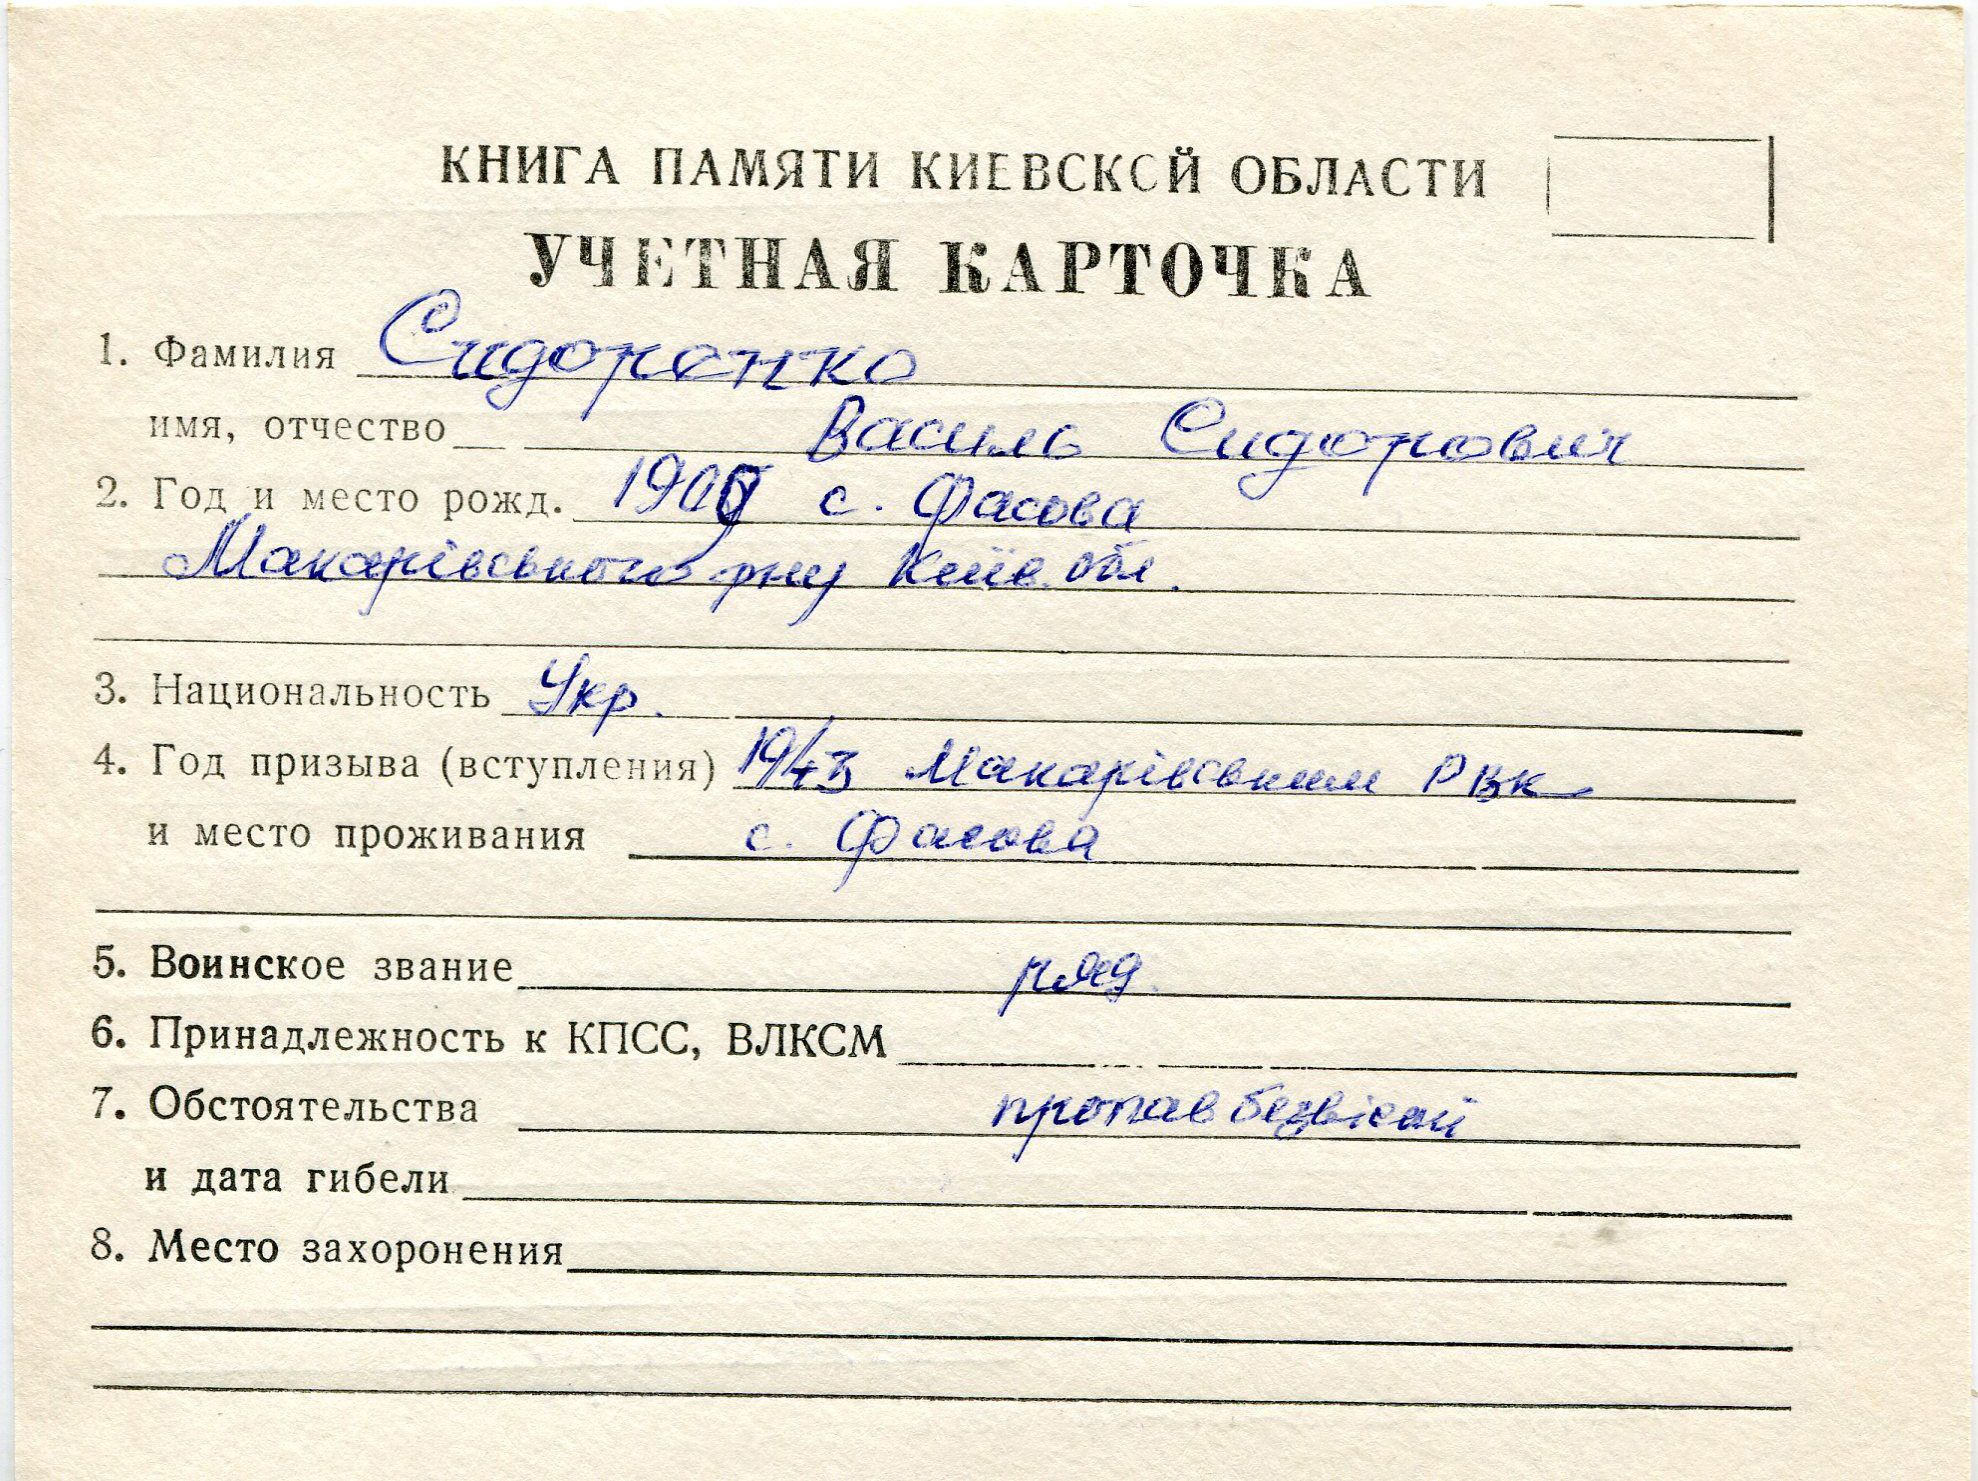 КНИГА ПАМЯТИ КИЕВСКОЙ ОБЛАСТИ
УЧЕТНАЯ КАРТОЧКА
1. Фамилия Сидоренко
имя, отчество Василь Сидорович
2. Год и место рожд. с. Фасова
Макарівського рну Київ. обл.
3. Национальность Укр.
4. Год призыва (вступления) 1943 Макарівським РВК
и место проживания с. Фасова
5. Воинское звание ряд.
6. Принадлежность к КПСС, ВЛКСМ
7. Обстоятельства пропав безвісти
и дата гибели
8. Место захоронения